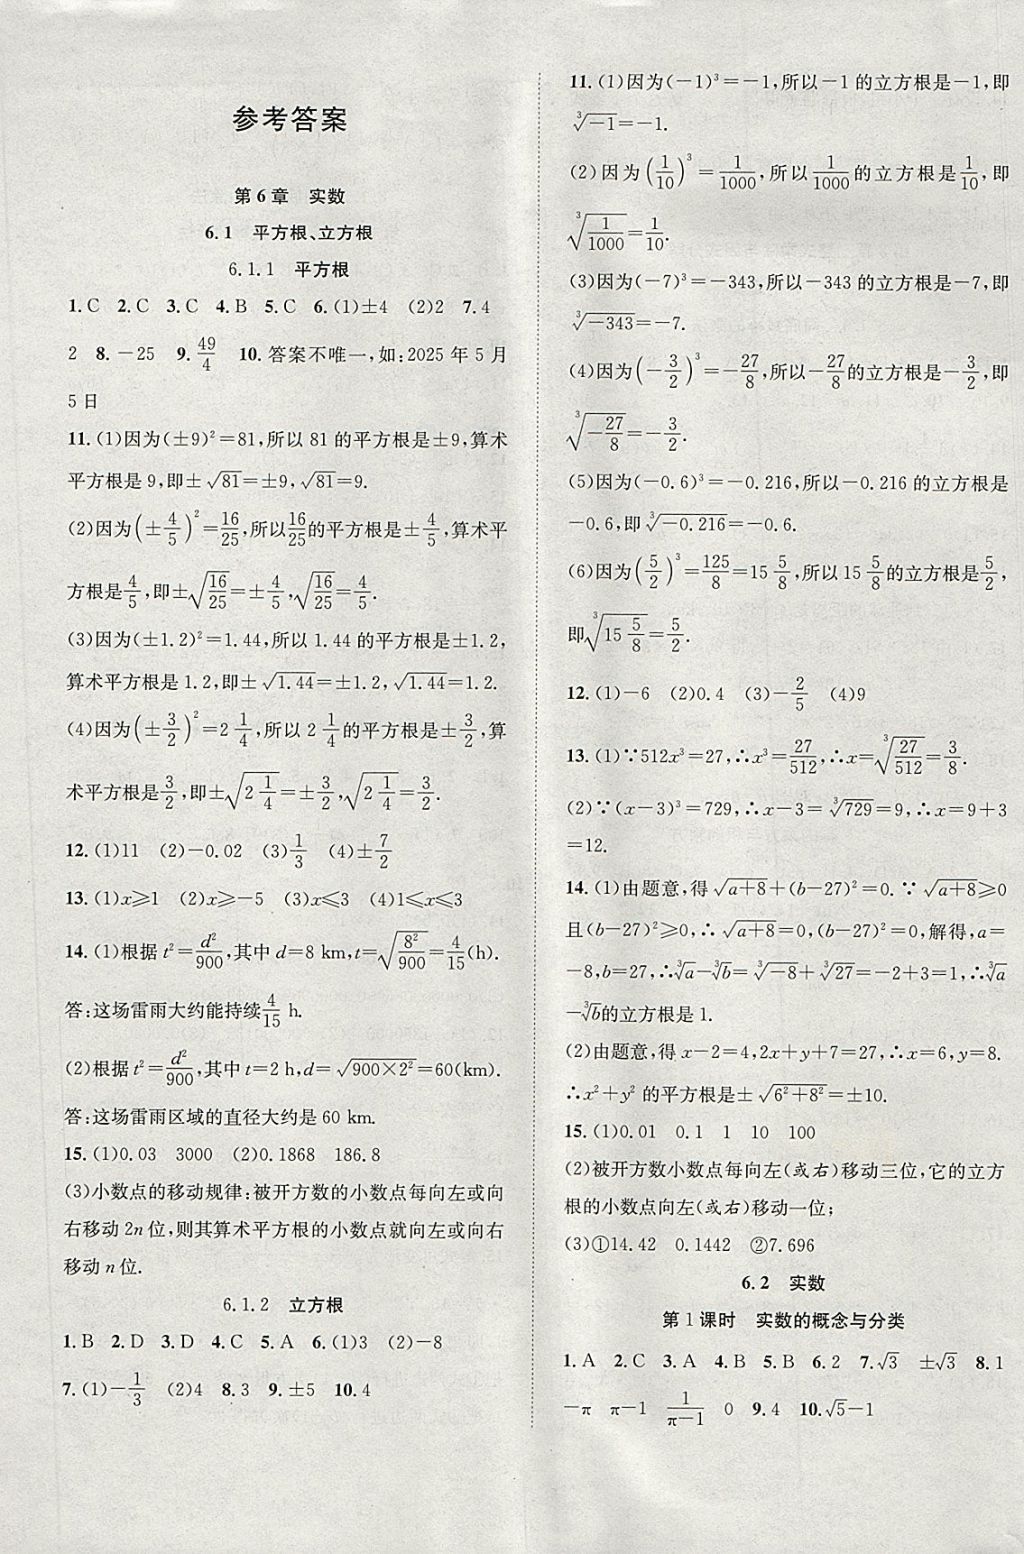 参考答案
第6章　实数
6.1　平方根、立方根
6.1.1　平方根
1.C　2.C　3.C　4.B　5.C　6.(1)±4　(2)2　7.4
2　8.－25　9.49/4　10.答案不唯一,如:2025年5月
5日
11.(1)因为(±9)²＝81,所以81的平方根是±9,算术
平方根是9,即±√81＝±9,√81＝9.
(2)因为(±4/5)²＝16/25,所以16/25的平方根是±4/5,算术平
方根是4/5,即±√(16/25)＝±4/5,√(16/25)＝4/5.
(3)因为(±1.2)²＝1.44,所以1.44的平方根是±1.2,
算术平方根是1.2,即±√1.44＝±1.2,√1.44＝1.2.
(4)因为(±3/2)²＝2 1/4,所以2 1/4的平方根是±3/2,算
术平方根是3/2,即±√(2 1/4)＝±3/2,√(2 1/4)＝3/2.
12.(1)11　(2)－0.02　(3)1/3　(4)±7/2
13.(1)x⩾1　(2)x⩾－5　(3)x⩽3　(4)1⩽x⩽3
14.(1)根据t²＝d²/900,其中d＝8 km,t＝√(8²/900)＝4/15(h).
答:这场雷雨大约能持续4/15 h.
(2)根据t²＝d²/900,其中t＝2 h,d＝√(900×2²)＝60(km).
答:这场雷雨区域的直径大约是60 km.
15.(1)0.03　3000　(2)0.1868　186.8
(3)小数点的移动规律:被开方数的小数点每向左或向
右移动2n位,则其算术平方根的小数点就向左或向右
移动n位.
6.1.2　立方根
1.B　2.D　3.D　4.C　5.A　6.(1)3　(2)－8
7.(1)－1/3　(2)4　8.3　9.±5　10.4
11.(1)因为(－1)³＝－1,所以－1的立方根是－1,即
∛(－1)＝－1.
(2)因为(1/10)³＝1/1000,所以1/1000的立方根是1/10,即
∛(1/1000)＝1/10.
(3)因为(－7)³＝－343,所以－343的立方根是－7,即
∛(－343)＝－7.
(4)因为(－3/2)³＝－27/8,所以－27/8的立方根是－3/2,即
∛(－27/8)＝－3/2.
(5)因为(－0.6)³＝－0.216,所以－0.216的立方根是
－0.6,即∛(－0.216)＝－0.6.
(6)因为(5/2)³＝125/8＝15 5/8,所以15 5/8的立方根是5/2,
即∛(15 5/8)＝5/2.
12.(1)－6　(2)0.4　(3)－2/5　(4)9
13.(1)∵512x³＝27,∴x³＝27/512,∴x＝∛(27/512)＝3/8.
(2)∵(x－3)³＝729,∴x－3＝∛729＝9,∴x＝9＋3
＝12.
14.(1)由题意,得√(a＋8)＋(b－27)²＝0.∵√(a＋8)⩾0
且(b－27)²⩾0,∴√(a＋8)＝0,(b－27)²＝0,解得,a＝
－8,b＝27,∴∛a－∛b＝∛(－8)＋∛27＝－2＋3＝1,∴∛a
－∛b的立方根是1.
(2)由题意,得x－2＝4,2x＋y＋7＝27,∴x＝6,y＝8.
∴x²＋y²的平方根是±√(6²＋8²)＝±10.
15.(1)0.01　0.1　1　10　100
(2)被开方数小数点每向左(或右)移动三位,它的立方
根的小数点向左(或右)移动一位;
(3)①14.42　0.1442　②7.696
6.2　实数
第1课时　实数的概念与分类
1.A　2.C　3.A　4.B　5.B　6.2　7.√3　±√3　8.1
－π　π－1　1/(π－1)　0　9.4　10.√5－1